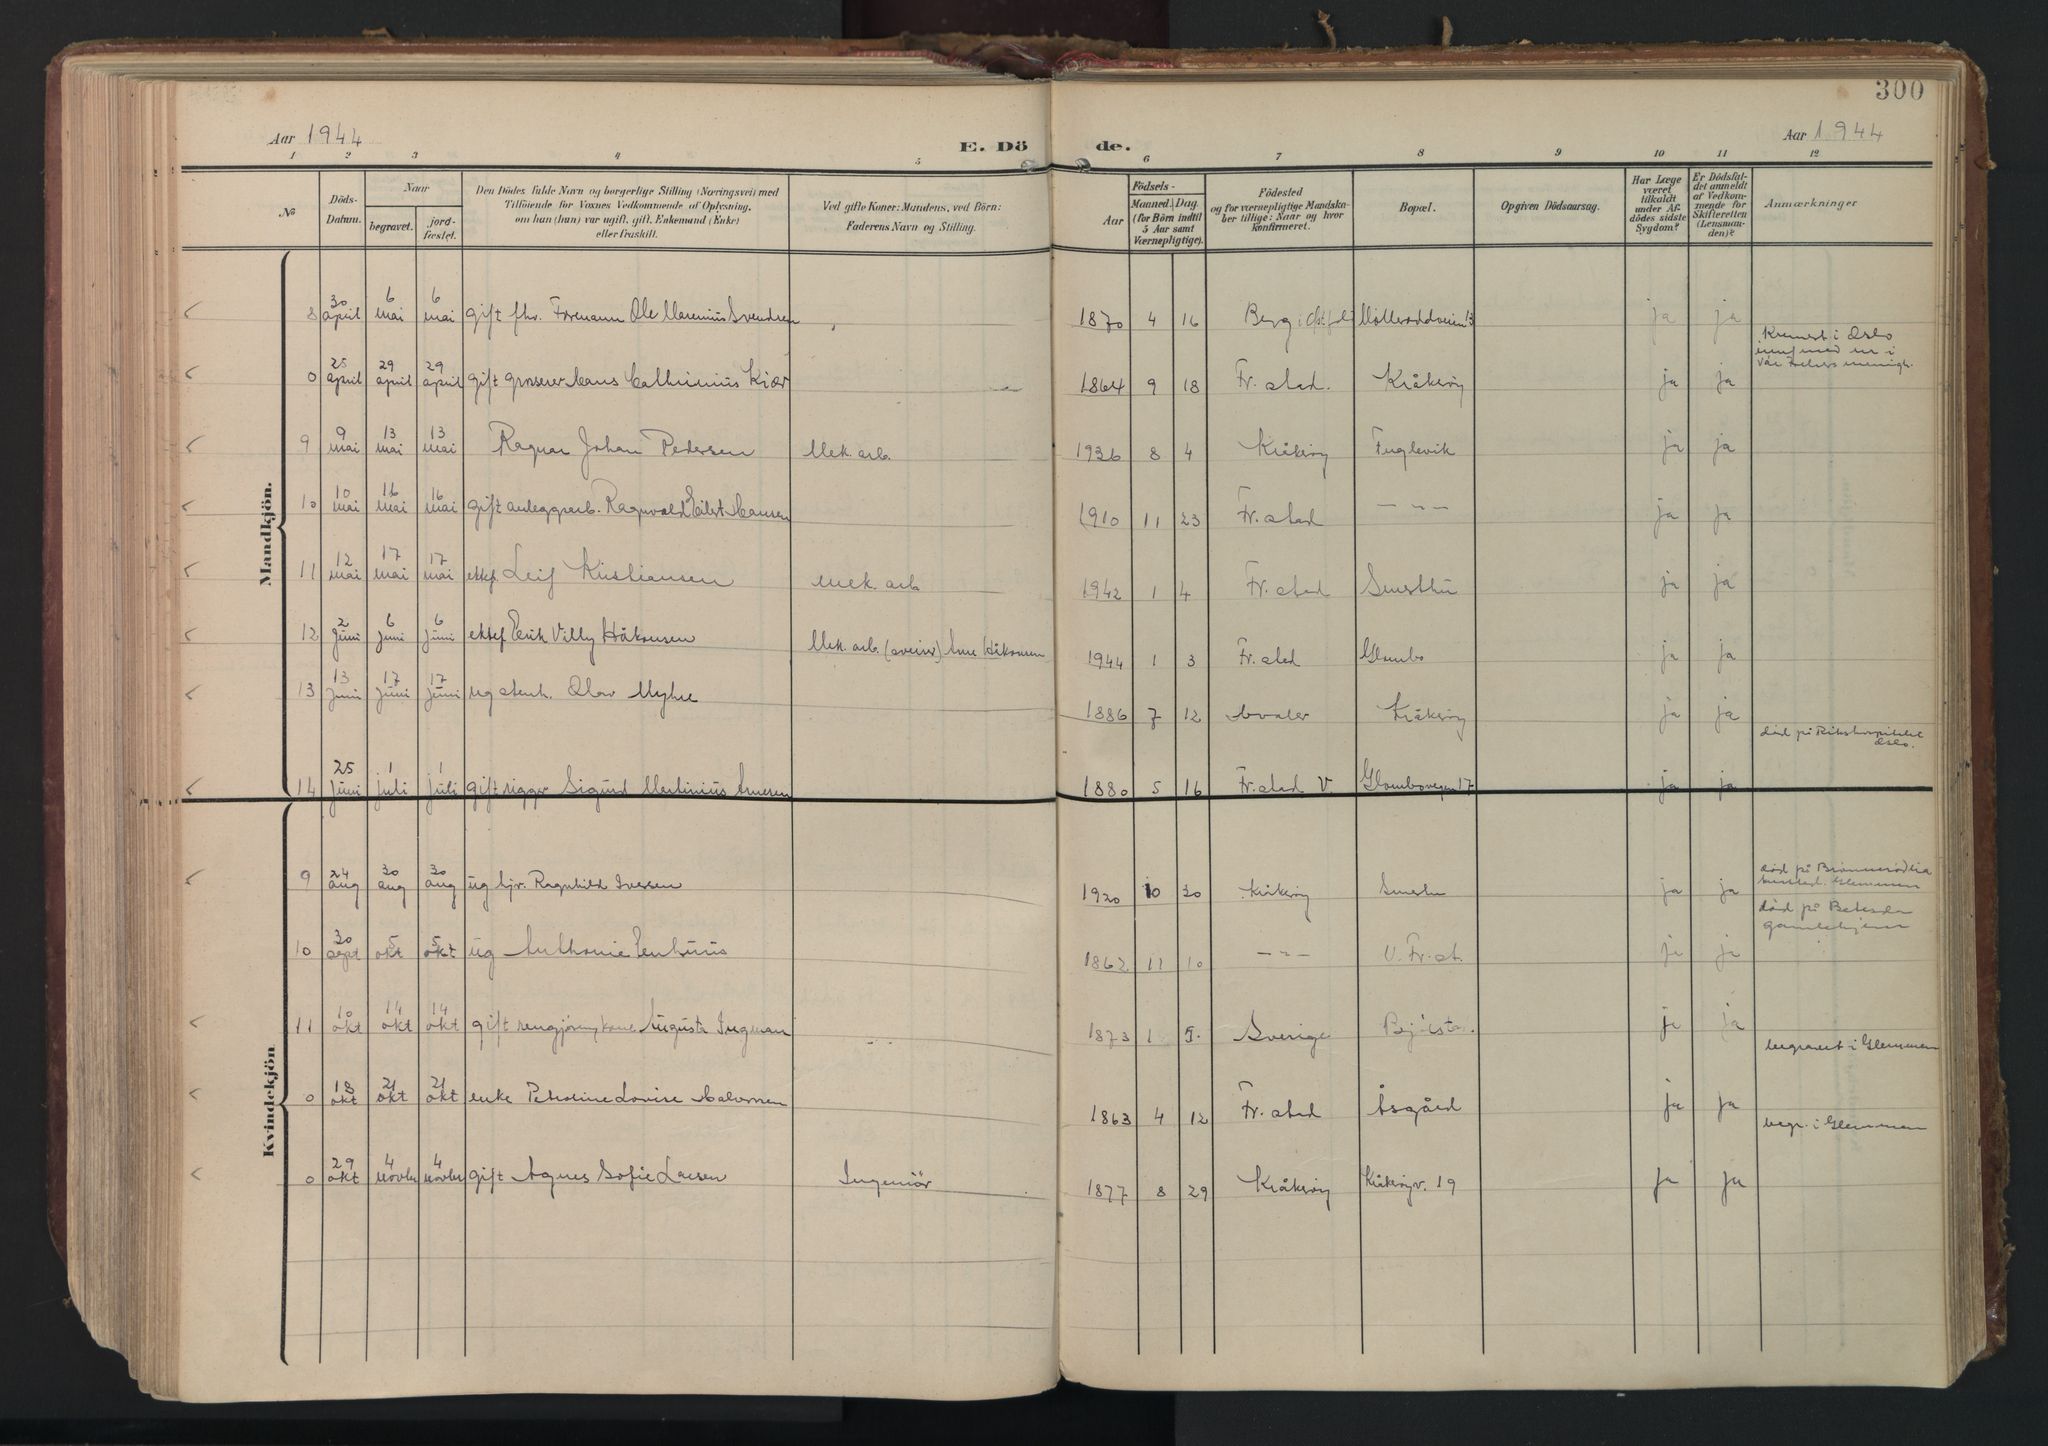 300
Aar 1944
E. Döde.
Aar 1944
1 2 3 4 5 6 7 8 9 10 11 12
No
Döds-Datum.
Naar
begravet.
jord-fæstet.
Den Dödes fulde Navn og borgerlige Stilling (Næringsvei) med
Tilföiende for Voxnes Vedkommende af Oplysning,
om han (hun) var ugift, gift, Enkemand (Enke)
eller fraskilt.
Ved gifte Koner: Mandens, ved Börn:
Faderens Navn og Stilling.
Födsels-
Aar
Maaned. Dag
(for Börn indtil
5 Aar samt
Værnepligtige).
Födested
og for værnepligtige Mandska-
ber tillige: Naar og hvor
Konfirmeret.
Bopæl.
Opgiven Dödsaarsag.
Har Læge
været
tilkaldt
under Af-
dödes sidste
Sygdom?
Er Dödsfal-
det anmeldt
af Vedkom-
mende for
Skifteretten
(Lensman-
den)?
Anmærkninger
Mandkjön.
8 30 april 6 mai 6 mai gift fhv. Formann Ole Marenius Svendsen 1870 4 16 Berg i Østfold 13 ja ja
0 25 april 29 april 29 april gift grosserer Hans Kiær 1864 9 18 Fr.stad. Kråkerøy ja ja Kremert i Oslo
9 9 mai 13 mai 13 mai Ragnar Johan Pedersen Mek. arb. 1936 8 4 Kråkerøy Fuglevik ja ja
10 10 mai 16 mai 16 mai gift anleggsarb. Ragnvald Eilert Hansen 1910 11 23 Fr.stad — " — ja ja
11 12 mai 17 mai 17 mai ektef. Leif Kristiansen Mek. arb 1942 1 4 Fr.stad ja ja
12 2 juni 6 juni 6 juni ektef Erik Villy Håkonsen Mek. arb. (sveiser) Arne Håkonsen 1944 1 3 Fr.stad Glombo ja ja
13 13 juni 17 juni 17 juni ug stenh. Olav Myhre 1886 7 12 Hvaler Kråkerøy ja ja
14 25 juni 1 juli 1 juli gift rigger Sigurd Martinius Arnesen 1880 5 16 Fr.stad V. Glombovegen 17 ja ja død på Rikshospitalet Oslo.
Kvindekjön
9 24 aug 30 aug 30 aug ug hjv. Ragnhild Iversen 1920 10 30 Kråkerøy ja ja død på Glemmen
10 30 sept 5 okt 5 okt ug Anthonie 1862 11 10 — " — V. Fr.st. ja ja død på Betesda gamlehjem
11 10 okt 14 okt 14 okt gift rengjøringskone Augusta Ingman 1873 1 5. Sverige ja ja
0 18 okt 21 okt 21 okt enke Petroline Lovise Halvorsen 1863 4 12 Fr.stad Åsgård ja ja begravet i Glemmen
0 29 okt 4 novbr 4 novbr gift Agnes Sofie Larsen Ingeniør 1877 8 29 Kråkerøy Kråkerøyv. 19 ja ja begr. i Glemmen